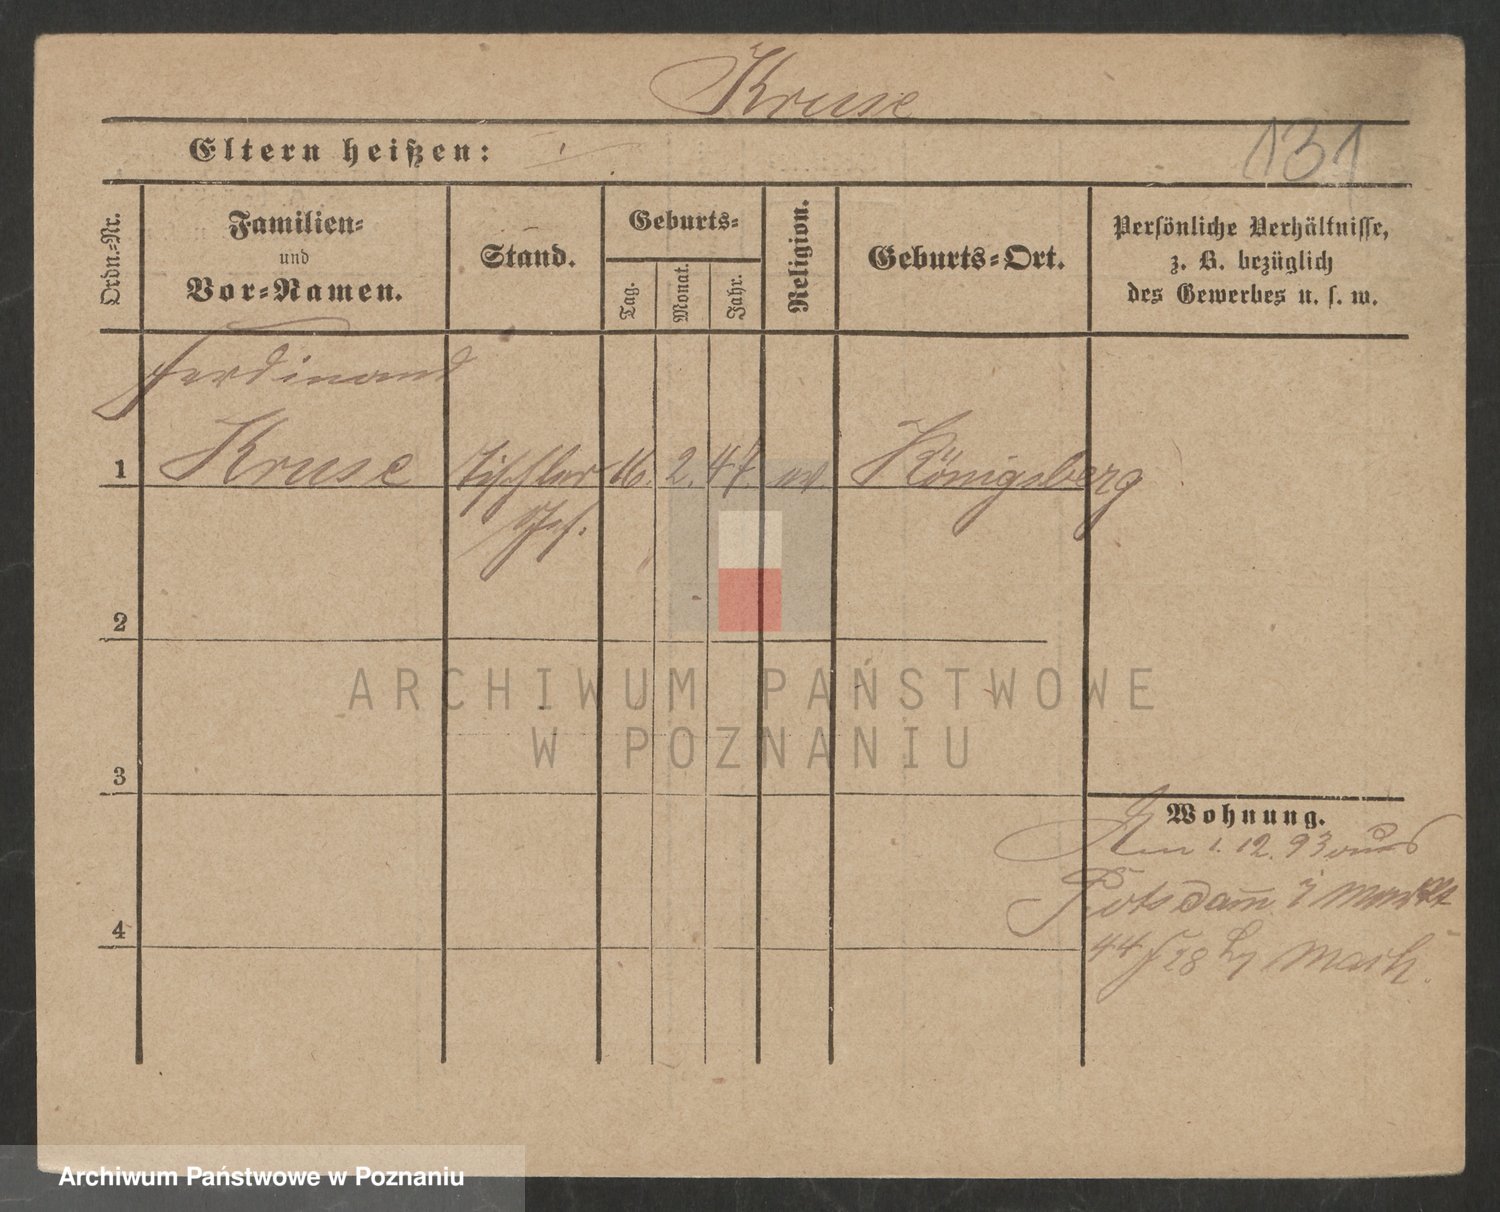 Kruse
131
Eltern heißen:
Ordn.-Nr.
Familien-
und
Vor-Namen.
Stand.
Geburts-
Tag.
Monat.
Jahr.
Religion.
Geburts-Ort.
Persönliche Verhältnisse,
z. B. bezüglich
des Gewerbes u. s. w.
Ferdinand
1 Kruse Tischler 16. 2. 47. ev Königsberg
Ges.
2
ARCHIWUM PAŃSTWOWE
W POZNANIU
3
Wohnung.
Am 1. 12. 93 aus
Potsdam
4
44 28 Mark.
Archiwum Państwowe w Poznaniu